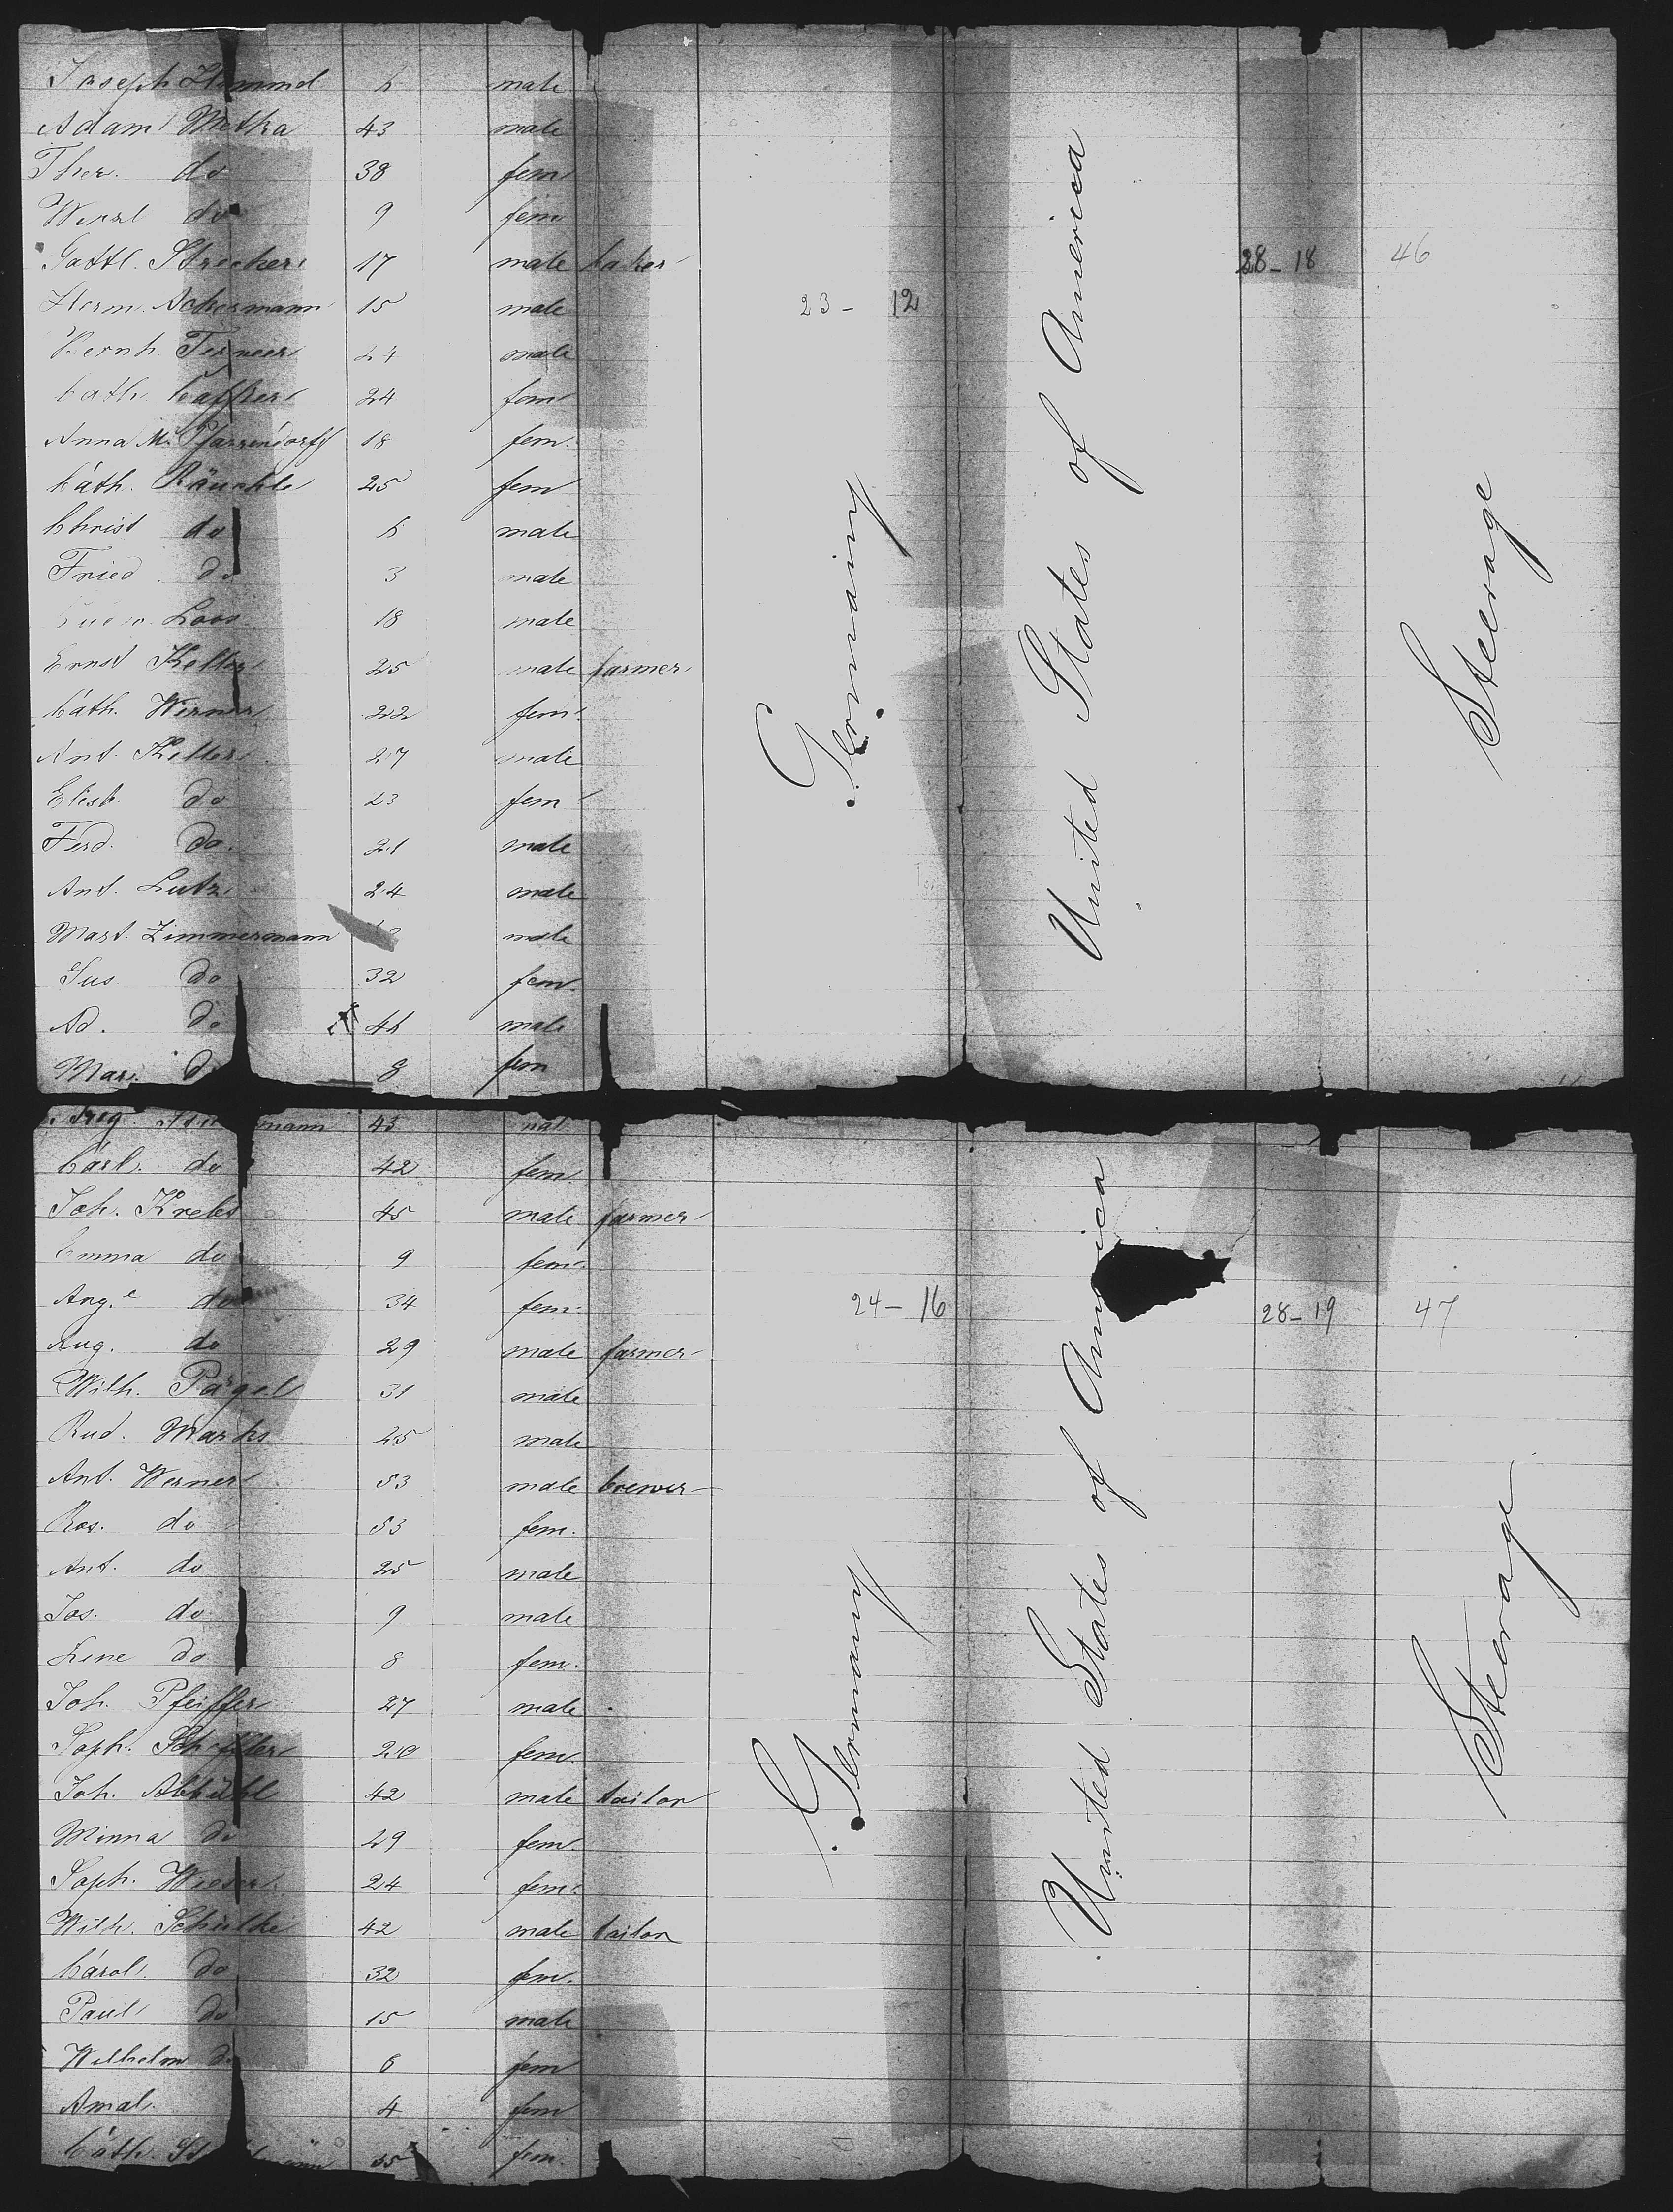 Joseph male
Adam Metka 43 male
Ther. do 38 fem
Wenzl do 9 fem
Gottl. Strecker 17 male baker 28-18 46
Herm. Ackermann 15 male 23-12
Bernh. male
Cath. 24 fem
Anna M. Pfarrendorff 18 fem.
Cath. Räuchle 25 fem
Christ do 6 male
Fried. do 3 male
Loos 18 male
Ernst Keller 25 male farmer
Cath. Werner 22 fem.
Ant. Keller 27 male
Elisb. do 23 fem
Ferd. do. 21 male
Ant. Lutz 24 male
Mart. Zimmermann male
Sus. do 32 fem.
Ad. do male
Mar. do 8 fem
Germany
United States of America
Steerage
mann 43
Carl. do 42 fem.
Joh. Krebs 45 male farmer
Emma do 9 fem.
Ang.e do 34 fem. 24-16 28-19 47
Aug. do 29 male farmer
Wilh. Pagel 31 male
Rud. Marks 25 male
Ant. Werner 53 male brewer
Ros. do 53 fem.
Ant. do 25 male
Jos. do 9 male
Lene do 8 fem.
Joh. Pfeiffer 27 male
Soph. 20 fem.
Joh. 42 male tailor
Minna do 29 fem.
Soph. Wieser 24 fem.
Wilh. Schulke 42 male tailor
Carol. do 32 fem.
Paul do 15 male
Wilhelm do 6 fem
Amal. 4 fem
Cath. 35 fem.
Germany
United States of America
Steerage